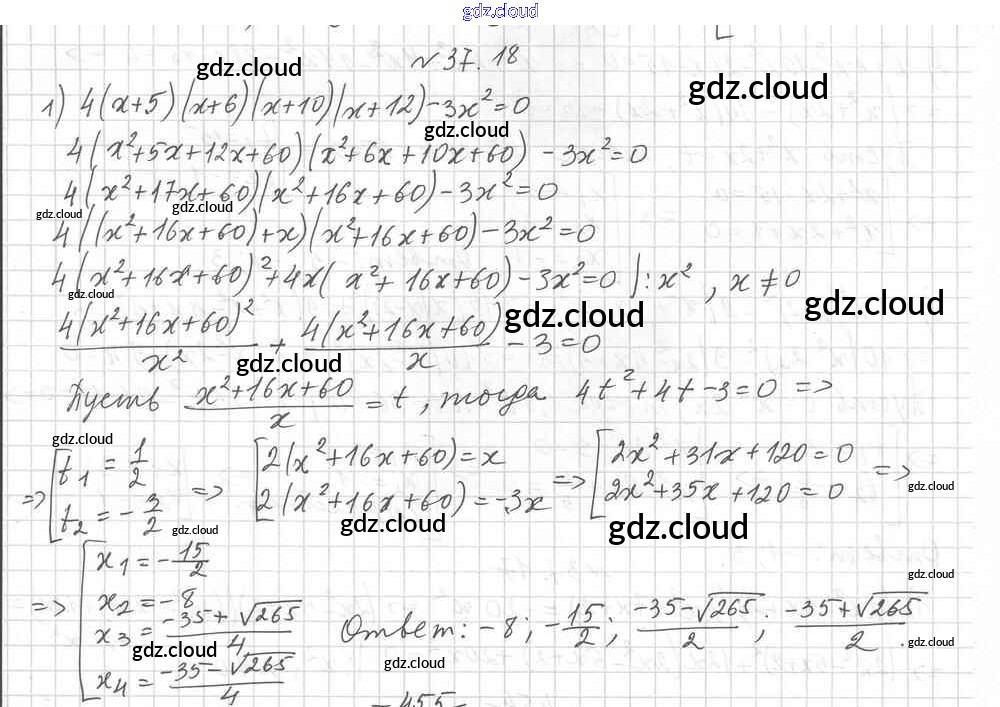 gdz.cloud
№ 37.18
gdz.cloud
gdz.cloud
1) 4(x+5)(x+6)(x+10)(x+12)-3x²=0
gdz.cloud
4(x²+5x+12x+60)(x²+6x+10x+60)-3x²=0
4(x²+17x+60)(x²+16x+60)-3x²=0
gdz.cloud
gdz.cloud
4((x²+16x+60)+x)(x²+16x+60)-3x²=0
4(x²+16x+60)²+4x(x²+16x+60)-3x²=0 |:x², x≠0
gdz.cloud
gdz.cloud
gdz.cloud
4(x²+16x+60)²/x² + 4(x²+16x+60)/x - 3=0
gdz.cloud
Пусть (x²+16x+60)/x = t, тогда 4t²+4t-3=0 =>
gdz.cloud
=> [t₁ = 1/2 t₂ = -3/2 => [2(x²+16x+60)=x 2(x²+16x+60)=-3x => [2x²+31x+120=0 2x²+35x+120=0 =>
gdz.cloud
gdz.cloud
gdz.cloud
gdz.cloud
=> [x₁=-15/2
x₂=-8
x₃=(-35+√265)/4
x₄=(-35-√265)/4
gdz.cloud
Ответ: -8; -15/2; (-35-√265)/2; (-35+√265)/2.
gdz.cloud
gdz.cloud
gdz.cloud